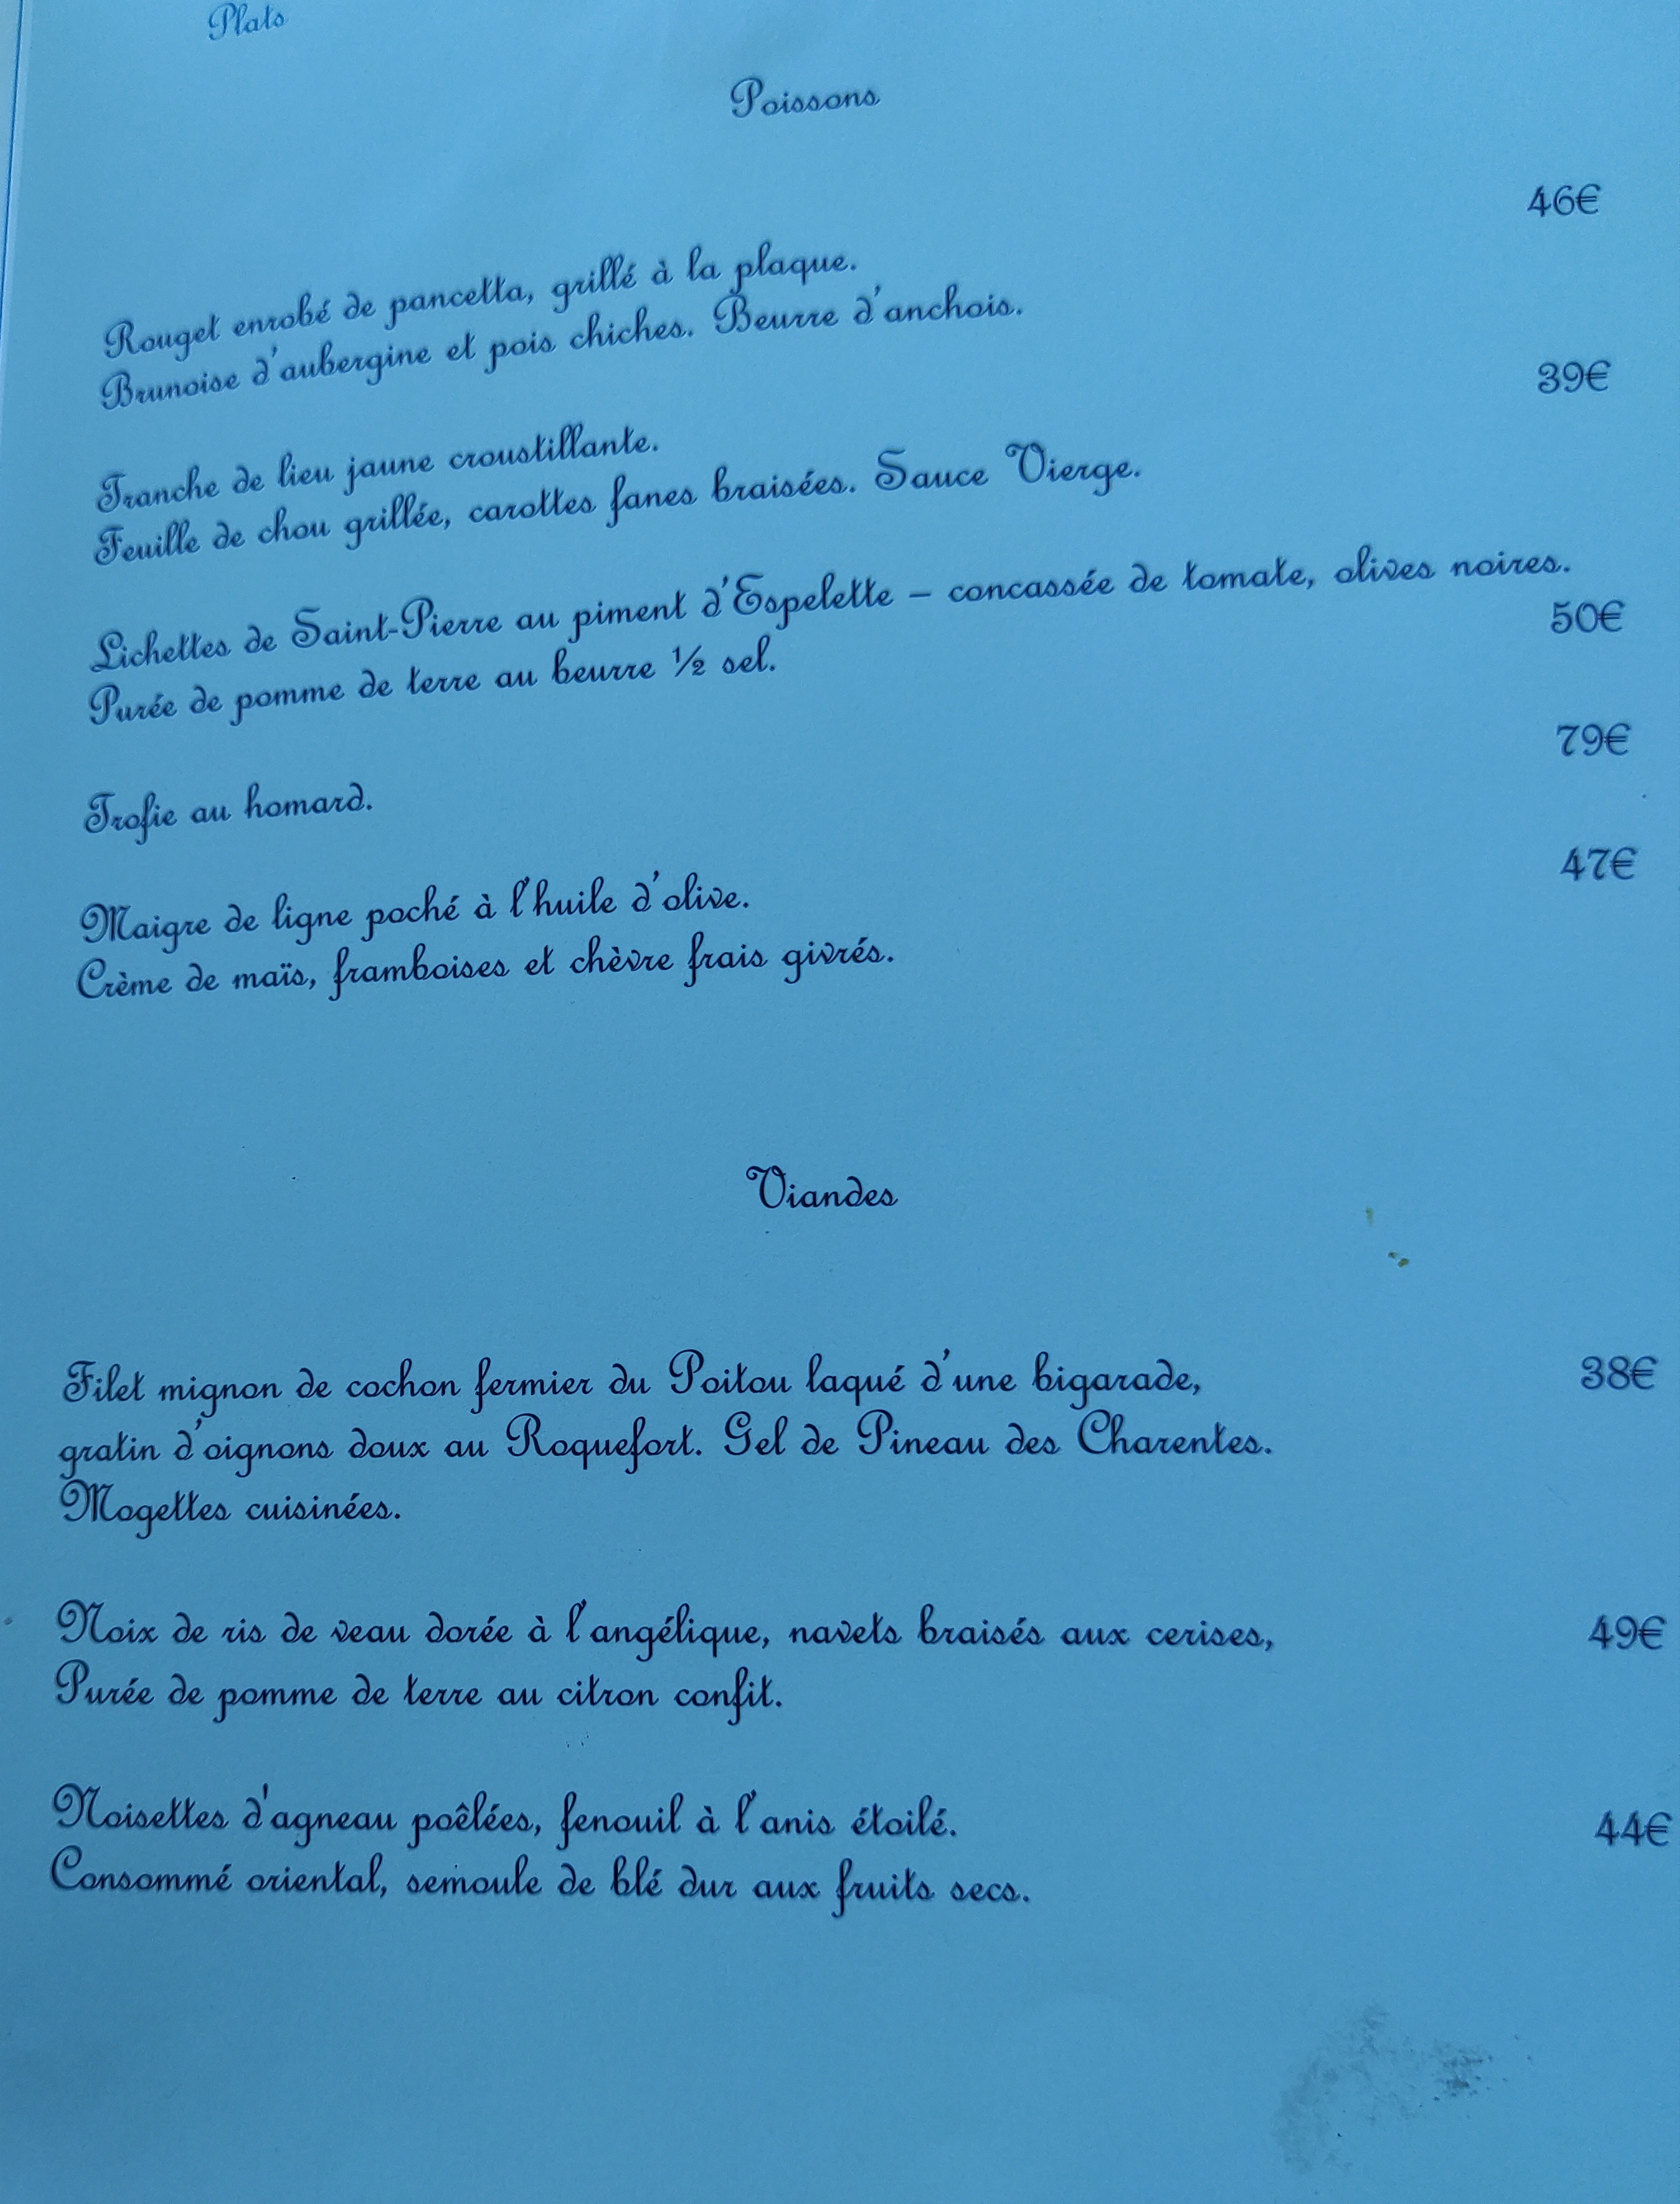 Plats
Poissons
46€
Rouget enrobé de pancetta, grillé à la plaque.
Brunoise d'aubergine et pois chiches. Beurre d'anchois.
39€
Tranche de lieu jaune croustillante.
Feuille de chou grillée, carottes fanes braisées. Sauce Vierge.
Lichettes de Saint-Pierre au piment d'Espelette – concassée de tomate, olives noires.
50€
Purée de pomme de terre au beurre ½ sel.
79€
Trofie au homard.
47€
Maigre de ligne poché à l'huile d'olive.
Crème de maïs, framboises et chèvre frais givrés.
Viandes
Filet mignon de cochon fermier du Poitou laqué d'une bigarade, 38€
gratin d'oignons doux au Roquefort. Gel de Pineau des Charentes.
Mogettes cuisinées.
Noix de ris de veau dorée à l'angélique, navets braisés aux cerises, 49€
Purée de pomme de terre au citron confit.
Noisettes d'agneau poêlées, fenouil à l'anis étoilé. 44€
Consommé oriental, semoule de blé dur aux fruits secs.